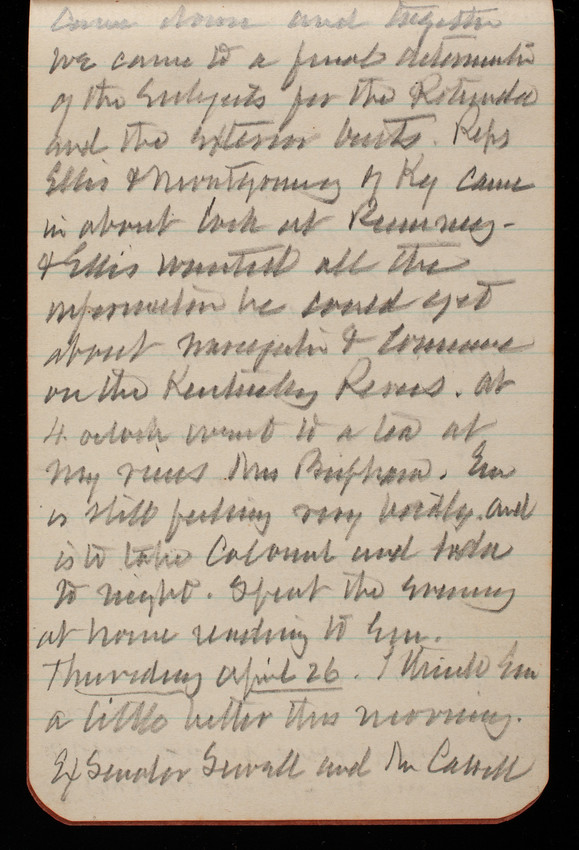 came down and together
we came to a final determination
of the subjects for the Rotunda
and the exterior busts. Reps
Ellis & Montgomery of Ky came
in about lock at
& Ellis wanted all the
information he could get
about navigation & commerce
on the Kentucky River. at
4 oclock went to a tea at
my niece Mrs Bigham. Em
is still feeling very badly. and
is to take Calomel and soda
to night. Spent the evening
at home reading to Em.
Thursday April 26. I think Em
a little better this morning.
Ex Senator Sewall and Mr